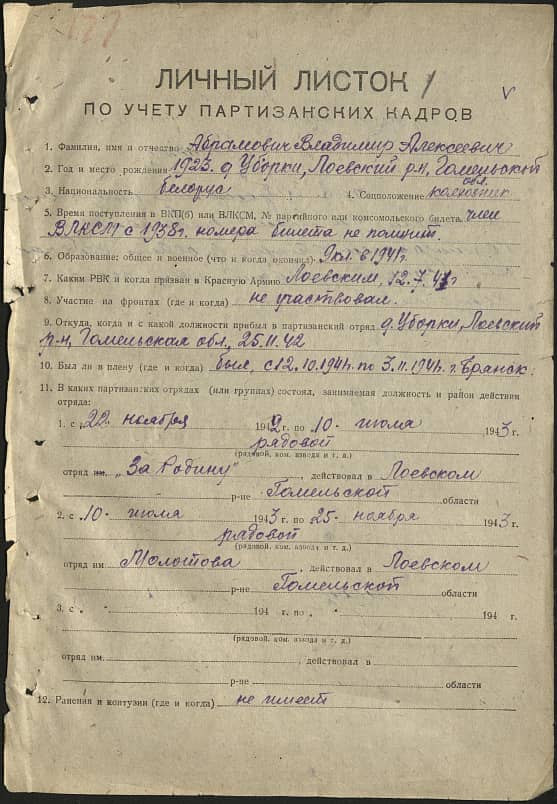 177
ЛИЧНЫЙ ЛИСТОК
ПО УЧЕТУ ПАРТИЗАНСКИХ КАДРОВ
1. Фамилия, имя и отчество Абрамович Владимир Алексеевич
2. Год и место рождения 1923. д Уборки, Лоевский р-н, Гомельской обл.
3. Национальность белорус 4. Соцположение колхозник
5. Время поступления в ВКП(б) или ВЛКСМ, № партийного или комсомольского билета член
ВЛКСМ с 1938г. номера билета не помнит.
6. Образование: общее и военное (что и когда окончил) 9 кл. в 1941г
7. Каким РВК и когда призван в Красную Армию Лоевским, 12.7.41г
8. Участие на фронтах (где и когда) не участвовал.
9. Откуда, когда и с какой должности прибыл в партизанский отряд д. Уборки, Лоевский
р-н, Гомельская обл, 25.11.42
10. Был ли в плену (где и когда) был, с 12.10.1941г по 3.11.1941г. г. Брянск.
11. В каких партизанских отрядах (или группах) состоял, занимаемая должность и район действия
отряда:
1. с 22 ноября 1942 г. по 10 июля 1943 г.
рядовой
(рядовой, ком. взвода и т. д.)
отряд им. „За Родину", действовал в Лоевском
р-не Гомельской области
2. с 10 июля 1943 г. по 25 ноября 1943 г.
рядовой
(рядовой, ком. взвода и т. д.)
отряд им. Молотова, действовал в Лоевском
р-не Гомельской области
3. с 194 г. по 194 г.
(рядовой, ком. взвода и т. д.)
отряд им. , действовал в
р-не области
12. Ранения и контузии (где и когда) не имеет